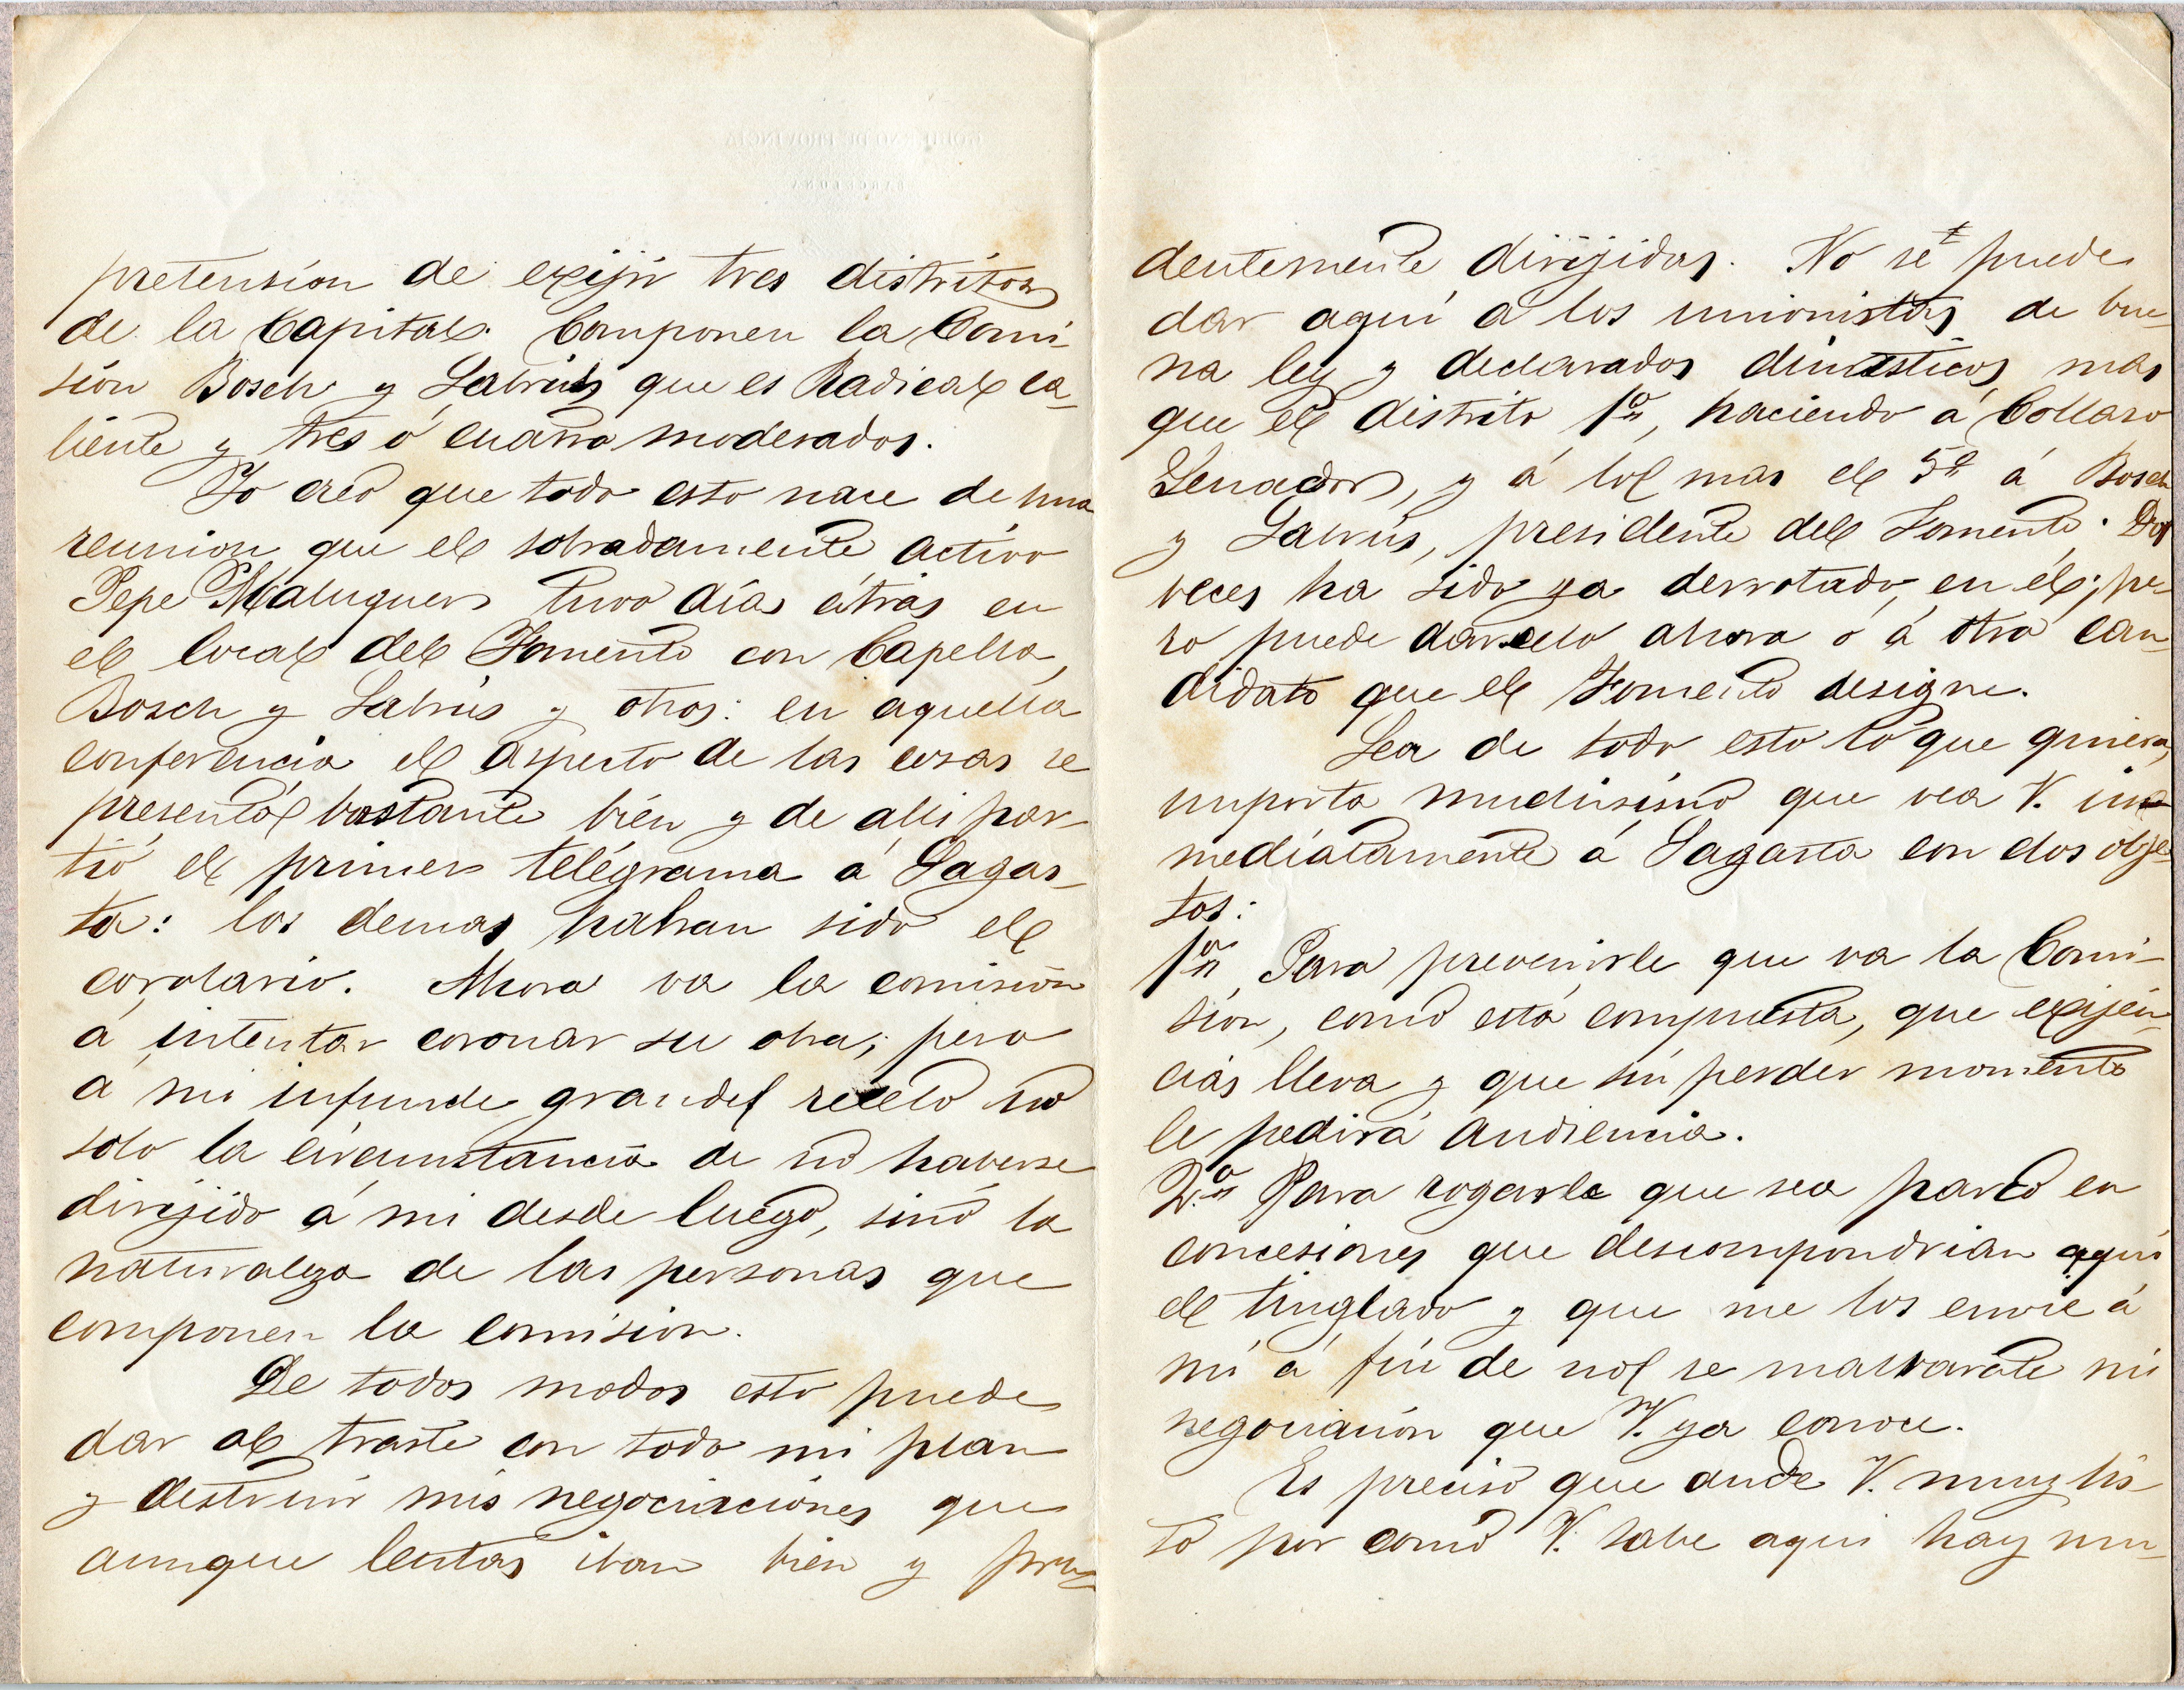 GOBIERNO DE PROVINCIA
BARCELONA
pretension de exijir tres distritos
de la Capital. Componen la Comi-
sion Bosch y Labrús que es Radical ca-
liente y tres ó cuatro moderados.
Yo creo que todo esto nace de una
reunion que el sobradamente activo
Pepe Maluquer tuvo dias atrás en
el local del Fomento con Capella,
Bosch y Labrús y otros: en aquella
conferencia el aspecto de las cosas se
presentó bastante bién y de alli par-
tió el primer telégrama á Sagas-
ta: los demas habran sido el
corolario. Ahora va la comision
á intentar coronar su obra; pero
á mi infunde grandes recelo no
solo la circunstancia de no haberse
dirijido á mi desde luego, sinó la
naturaleza de las personas que
componen la comision.
De todos modos esto puede
dar al traste con todo mi plan
y destruir mis negociaciones que
aunque lentas iban bien y pru-
dentemente dirijidas. No se puede
dar aquí á los unionistas de bue-
na ley y declarados dinásticos mas
que el distrito 1º, haciendo á Collaso
Senador, y á lo mas el 5º á Bosch
y Labrús, presidente del Fomento. Dos
veces ha sido ya derrotado en él; pe-
ro puede darselo ahora ó á otro can-
didato que el Fomento designe.
Sea de todo esto lo que quiera,
importa muchisimo que vea V. in-
mediatamente á Sagasta con dos obje-
tos:
1º Para prevenirle que va la Comi-
sion, como está compuesta, que exijen-
cias lleva y que sin perder momento
le pedirá audiencia.
2º Para rogarle que sea parco en
concesiones que descompondrian aqui
el tinglado y que me los envie á
mi á fin de no se malbarate mi
negociación que V. ya conoce.
Es preciso que ande V. muy lis-
to por como V. sabe aqui hay mu-